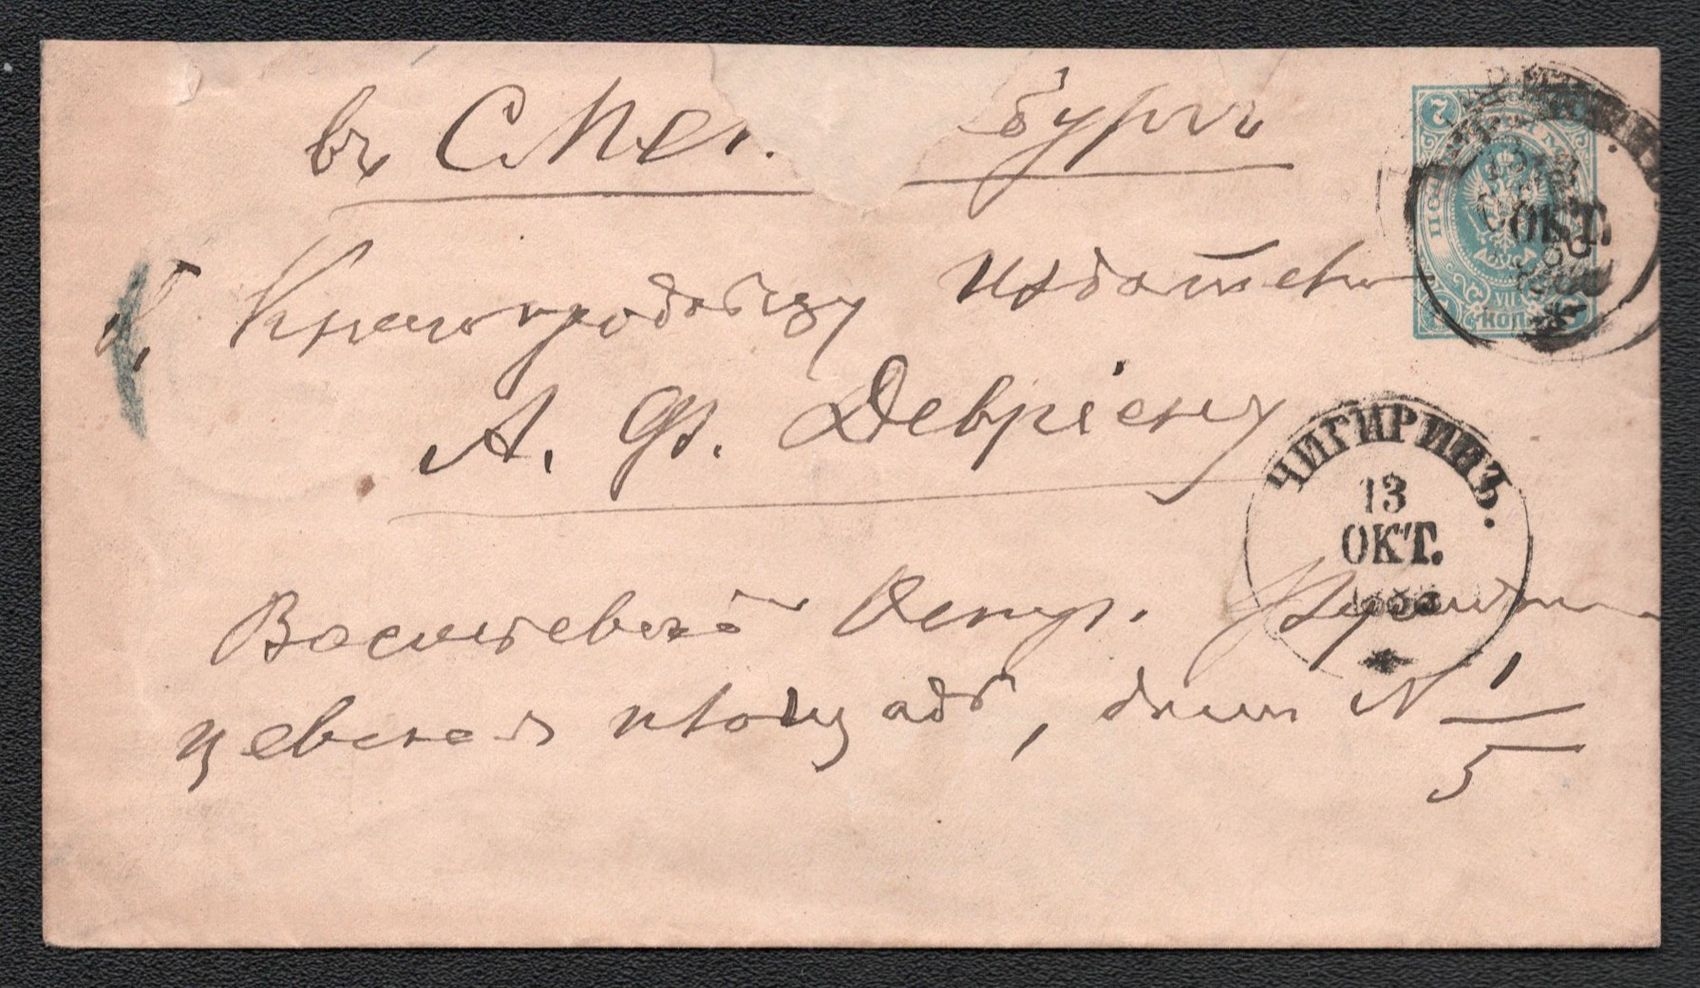 въ С Пет бургъ
Книгопродавцу Издателю
А. Ф. Девріену
Васильевскій Остр. Румян
цевская площадь, домъ № 1/5
7
КОП.
ОКТ.
ЧИГИРИНЪ.
13
ОКТ.